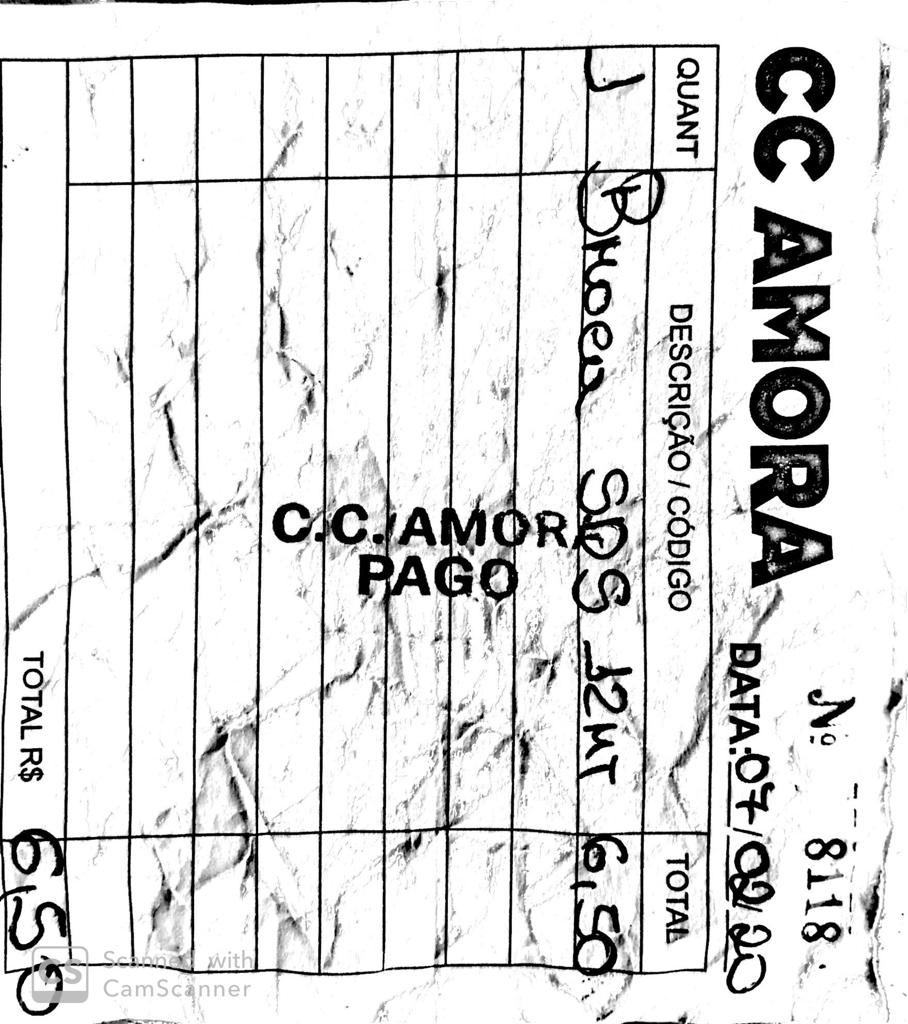 CC AMORA
Nº 8118
DATA: 07/02/20
QUANT DESCRIÇÃO / CÓDIGO TOTAL
1 Broca SDS 12MT 6,50
C.C. AMORA
PAGO
TOTAL R$ 6,50
Scanned with
CamScanner